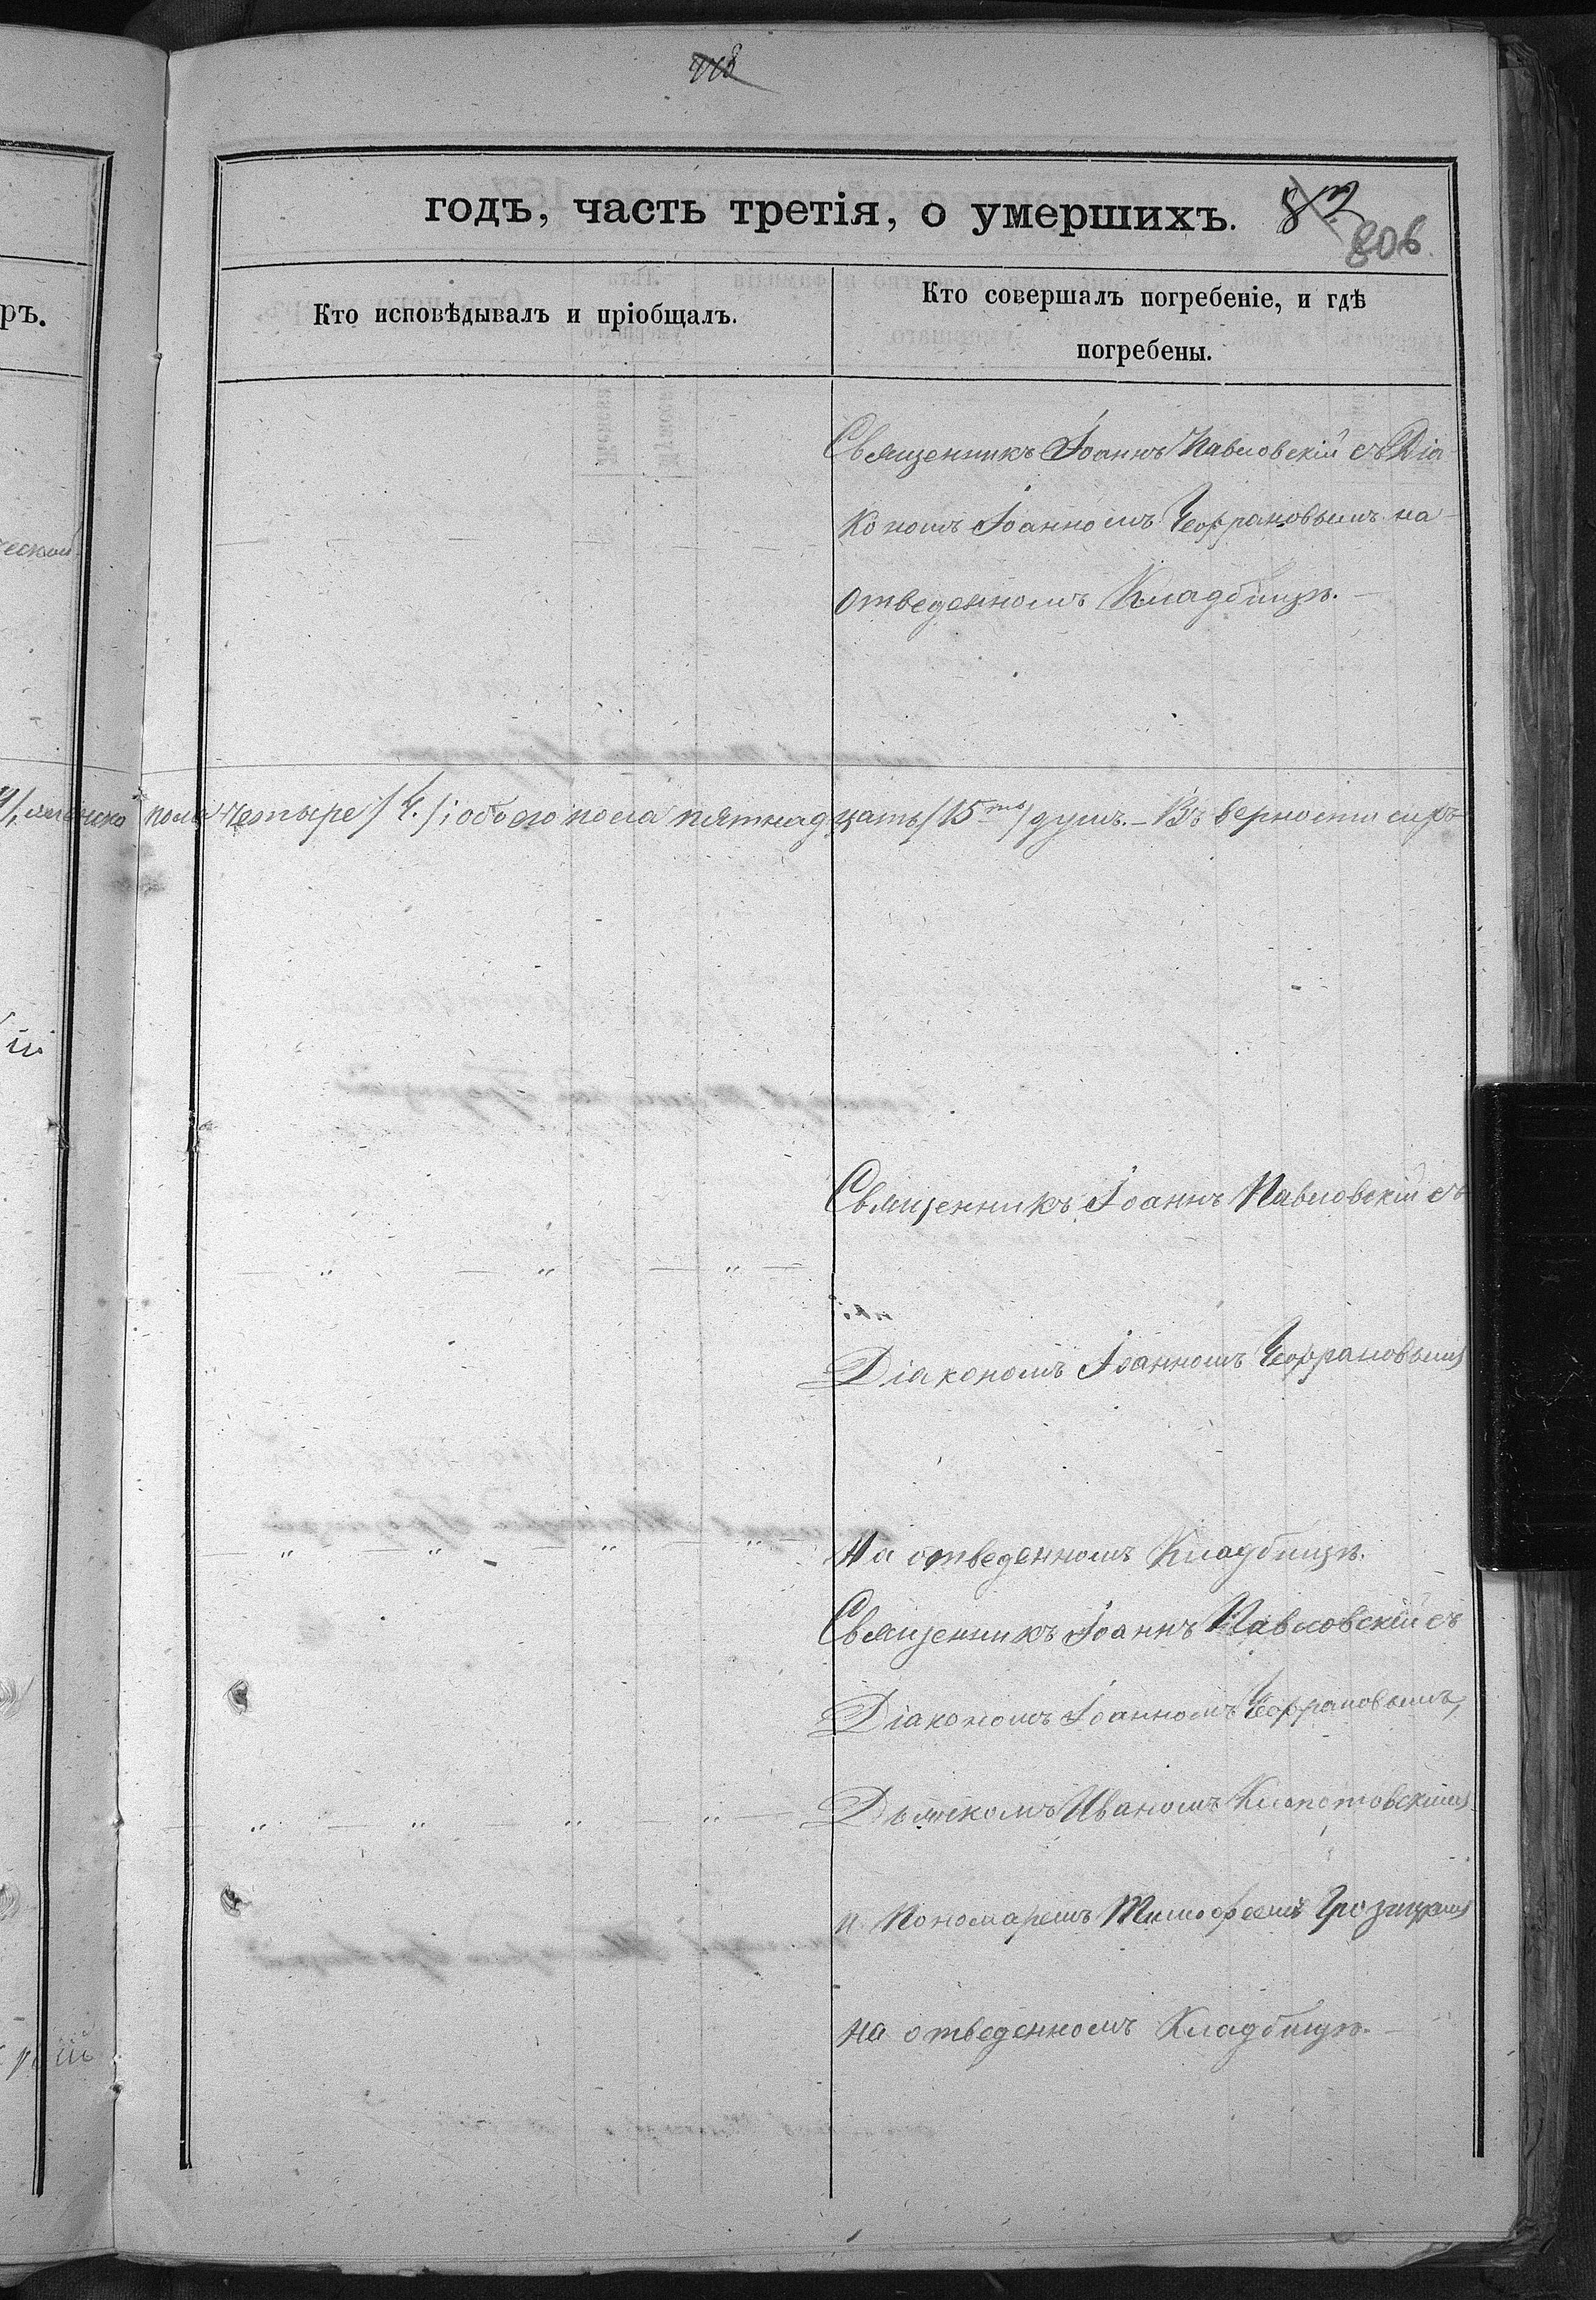 418
годъ, часть третія, о умершихъ.
806.
Кто исповѣдывалъ и пріобщалъ.
Кто совершалъ погребеніе, и гдѣ
погребены.
Священникъ Іоаннъ Павловскій съ Діа-
кономъ Іоанномъ на
отведенномъ Кладбищѣ.-
пола четыре /4./ і обоего пола пятнадцать /15-ть/ душъ.- Въ верности сихъ
Священникъ Іоаннъ Павловскій съ
Діакономъ Іоанномъ
На отведенномъ Кладбищѣ.
Священникъ Іоаннъ Павловскій съ
Діакономъ Іоанномъ
Дьячкомъ Иваномъ Клопотовскимъ
и Пономаремъ Тимофеемъ
на отведенномъ Кладбищѣ.-